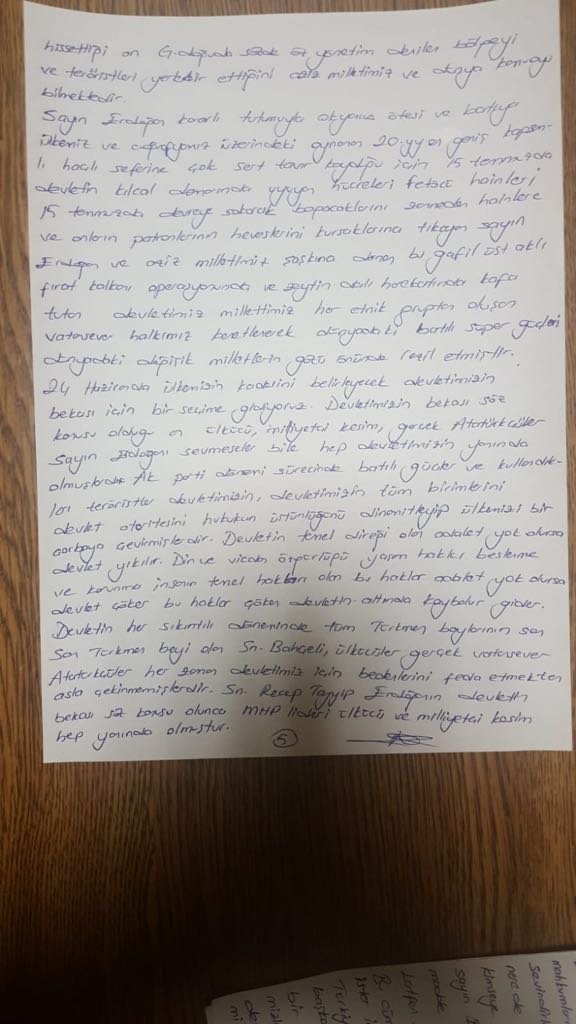 hissettiği an G.doğuda sözde öz yönetim denilen bölgeyi
ve teröristleri yerlebir ettiğini aziz milletimiz ve dünya kamuoyu
bilmektedir.
Sayın Erdoğan kararlı tutumuyla okyanus ötesi ve batıya
ülkemiz ve coğrafyamız üzerindeki oynanan 20.yy en geniş kapsam-
lı haçlı seferine çok sert tavır koyduğu için 15 temmuzda
devletin kılcal damarında uyuyan hücreleri fetöcü hainleri
15 temmuzda devreye sokarak başaracaklarını zanneden hainlere
ve onların patronlarının heveslerini kursaklarına tıkayan sayın
Erdoğan ve aziz milletimiz şaşkına dönen bu gafil üst aklı
fırat kalkanı operasyonunda ve zeytin dalı harekatında kafa
tutan devletimiz millettimiz her etnik gruptan oluşan
vatansever halkımız kenetlenerek dünyadaki batılı süper güçleri
dünyadaki değişik milletlerin gözü önünde rezil etmiştir.
24 Haziranda ülkemizin kaderini belirleyecek devletimizin
bekası için bir seçime gidiyoruz. Devletimizin bekası söz
konusu olduğu an ülkücü, milliyetçi kesim, gerçek Atatürkçüler
Sayın Erdoğanı sevmeseler bile hep devletimizin yanında
olmuşlardır. Ak parti dönemi sürecinde batılı güçler ve kullandık-
ları teröristler devletimizin, devletimizin tüm birimlerini
devlet otoritesini hukukun üstünlüğünü dinamitleyip ülkemizi bir
çorbaya çevirmişlerdir. Devletin temel direği olan adalet yok olursa
devlet yıkılır. Din ve vicdan özgürlüğü yaşam hakkı beslenme
ve korunma insanın temel hakları olan bu haklar adalet yok olursa
devlet çöker bu haklar çöken devletin altında kaybolur gider.
Devletin her sıkıntılı döneminde tüm Türkmen boylarının son
Son Türkmen beyi olan Sn. Bahçeli, ülkücüler gerçek vatansever
Atatürkçüler her zaman devletimiz için bedenlerini feda etmekten
asla çekinmemişlerdir. Sn. Recep Tayyip Erdoğanın devletin
bekası söz konusu olunca MHP lideri ülkücü ve milliyetçi kesim
hep yanında olmuştur.
5
mahkumları
Sevindirir
nerede
kimseye
sayın
madde
Lütfen
B. cüm
ister
Türkiy
başka
bir
mizi
de
mi